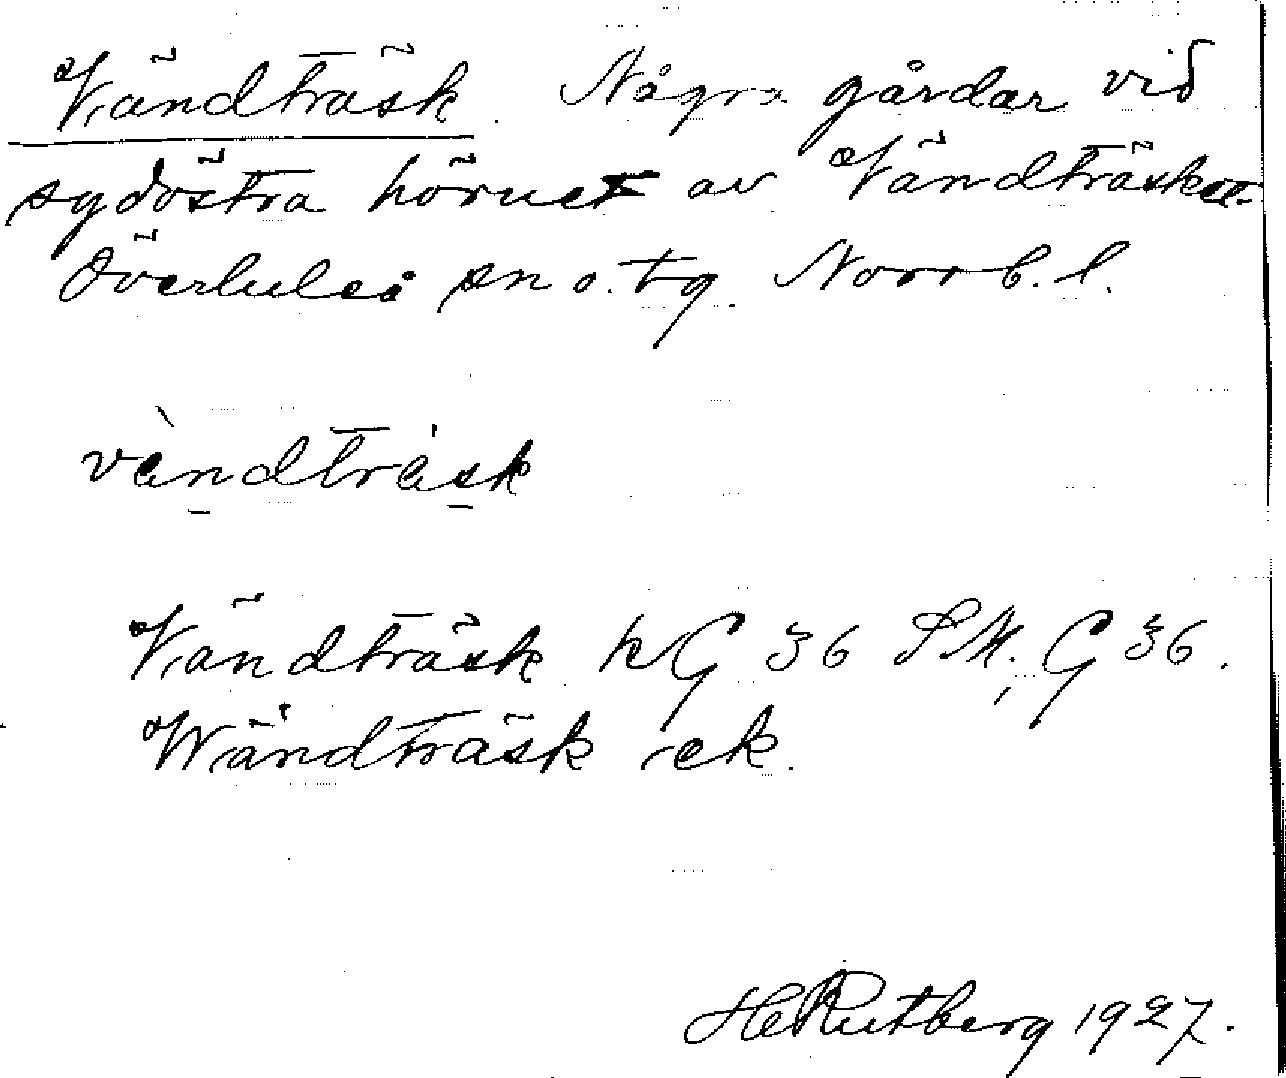 Vändträsk. Några gårdar vid
sydöstra hörnet av Vändträsket
Överluleå sn o. tg. Norrb. l.
vàndträsk
Vändträsk hG 36 SM, G 36.
Wändträsk ek.
HeRutberg 1927.